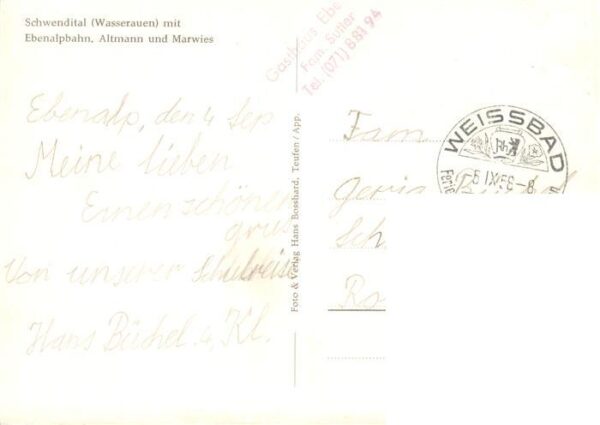 Schwendital (Wasserauen) mit
Ebenalpbahn, Altmann und Marwies
Gasthaus Ebe
Fam. Sutter
Tel. (071) 8 81 94
Ebenalp, den 4 Sep
Meine lieben
Einen schönen
grus
Von unserer Schulreise
Hans Büchel 4. Kl.
Foto & Verlag Hans Bosshard, Teufen / App.
WEISSBAD
IX 58-8
Fam
Sch
Ro